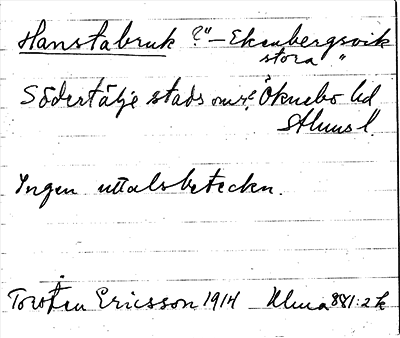 Hanstabruk ?"– Ekenbergsvik
stora "
Södertälje stads omr. Öknebo hd
Sthms l.
Ingen uttalsbeteckn.
Torsten Ericsson 1914 Ulma 881:2 k